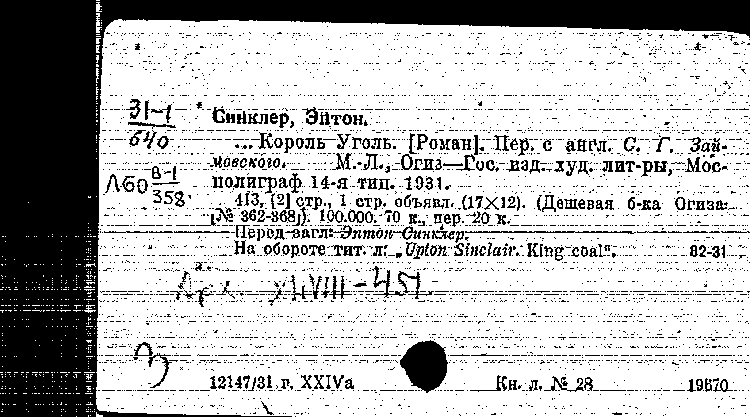 31-1
640
Синклер, Эптон.
... Король Уголь. [Роман]. Пер. с англ. С. Г. Зай-
мовского. М.-Л., Огиз—Гос. изд. худ. лит-ры, Мос-
Л60 В-1
358
полиграф 14-я тип. 1931.
413, [2] стр., 1 стр. объявл. (17×12). (Дешевая б-ка Огиза:
[№ 362-368]). 100.000. 70 к., пер. 20 к.
Перед загл: Эптон Синклер.
На обороте тит. л: „Upton Sinclair. King coal". 82-31
Арх. XLVIII-451.
12147/31 г. XXIVa Кн. л. № 28 19670